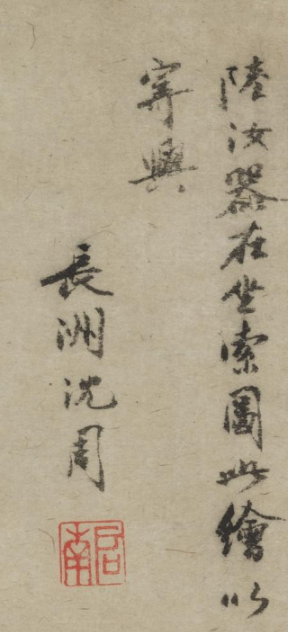 陸汝器在坐索圖此繪以
寄興
長洲沈周
启南